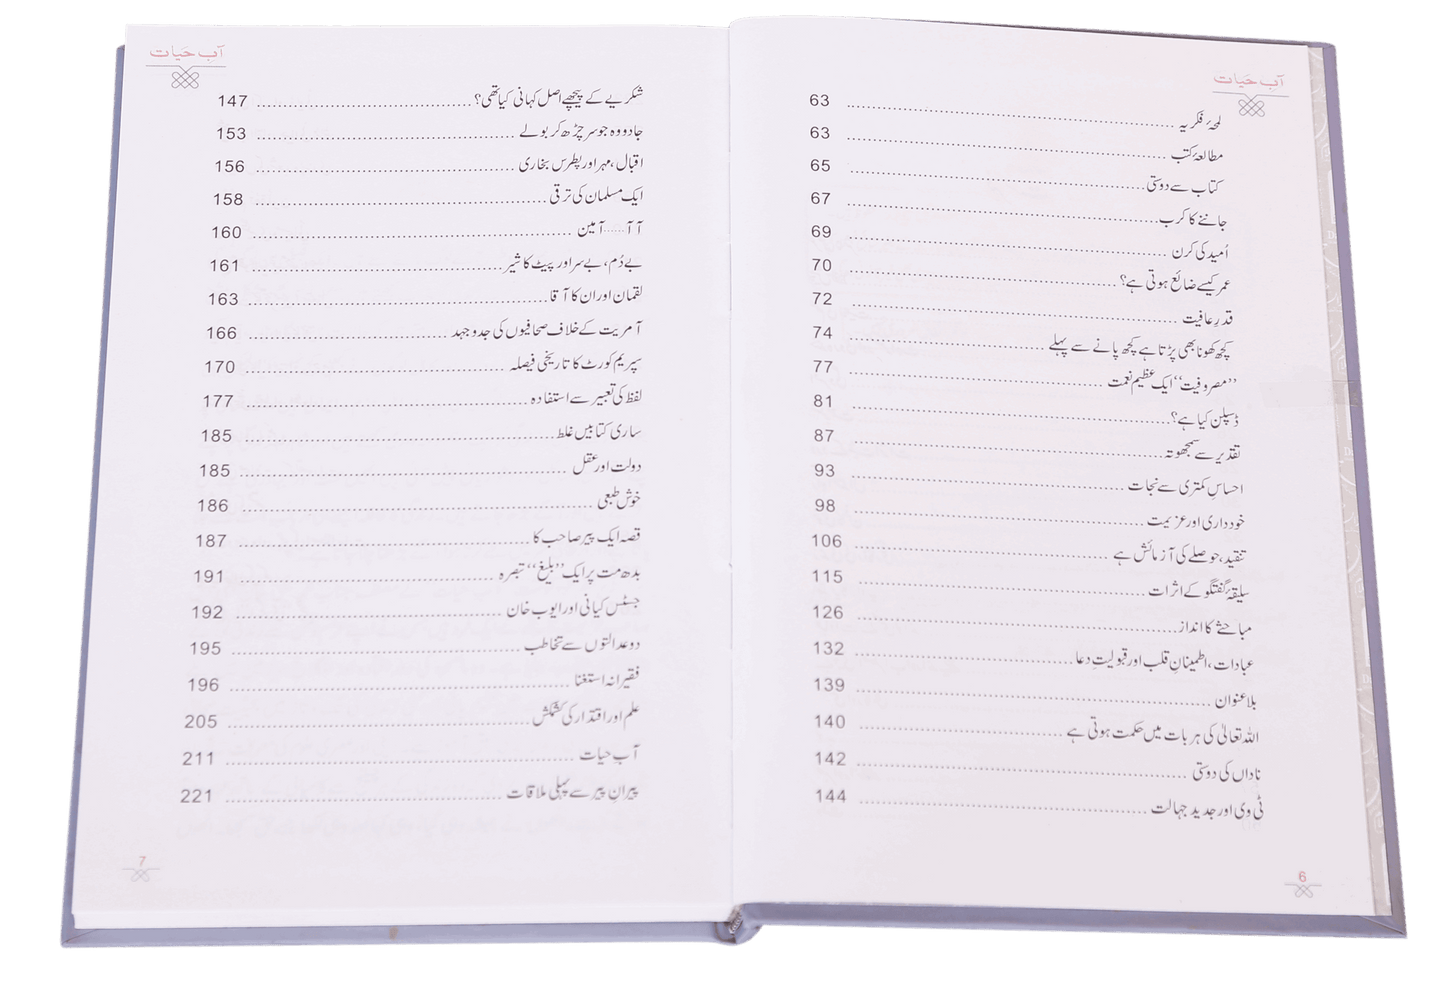 آبِ حَیات
لمحۂ فکریہ ........ 63
مطالعۂ کتب ........ 63
کتاب سے دوستی ........ 65
جاننے کا کرب ........ 67
اُمید کی کرن ........ 69
عمر کیسے ضائع ہوتی ہے؟ ........ 70
قدرِ عافیت ........ 72
کچھ کھونا بھی پڑتا ہے کچھ پانے سے پہلے ........ 74
’’مصروفیت‘‘ ایک عظیم نعمت ........ 77
ڈسپلن کیا ہے؟ ........ 81
تقدیر سے سمجھوتہ ........ 87
احساسِ کمتری سے نجات ........ 93
خودداری اور عزیمت ........ 98
تنقید، حوصلے کی آزمائش ہے ........ 106
سلیقۂ گفتگو کے اثرات ........ 115
مباحثے کا انداز ........ 126
عبادات، اطمینانِ قلب اور قبولیتِ دعا ........ 132
بلا عنوان ........ 139
اللہ تعالیٰ کی ہر بات میں حکمت ہوتی ہے ........ 140
ناداں کی دوستی ........ 142
ٹی وی اور جدید جہالت ........ 144
6
آبِ حَیات
شکریے کے پیچھے اصل کہانی کیا تھی؟ ........ 147
جادو وہ جو سر چڑھ کر بولے ........ 153
اقبال، مہر اور پطرس بخاری ........ 156
ایک مسلمان کی ترقی ........ 158
آ آ......آمین ........ 160
بے دُم، بے سر اور پیٹ کا شیر ........ 161
لقمان اور ان کا آقا ........ 163
آمریت کے خلاف صحافیوں کی جدوجہد ........ 166
سپریم کورٹ کا تاریخی فیصلہ ........ 170
لفظ کی تعبیر سے استفادہ ........ 177
ساری کتابیں غلط ........ 185
دولت اور عقل ........ 185
خوش طبعی ........ 186
قصہ ایک پیر صاحب کا ........ 187
بدھ مت پر ایک ’’بلیغ‘‘ تبصرہ ........ 191
جسٹس کیانی اور ایوب خان ........ 192
دو عدالتوں سے تخاطب ........ 195
فقیرانہ استغنا ........ 196
علم اور اقتدار کی کشمکش ........ 205
آب حیات ........ 211
پیرانِ پیر سے پہلی ملاقات ........ 221
7